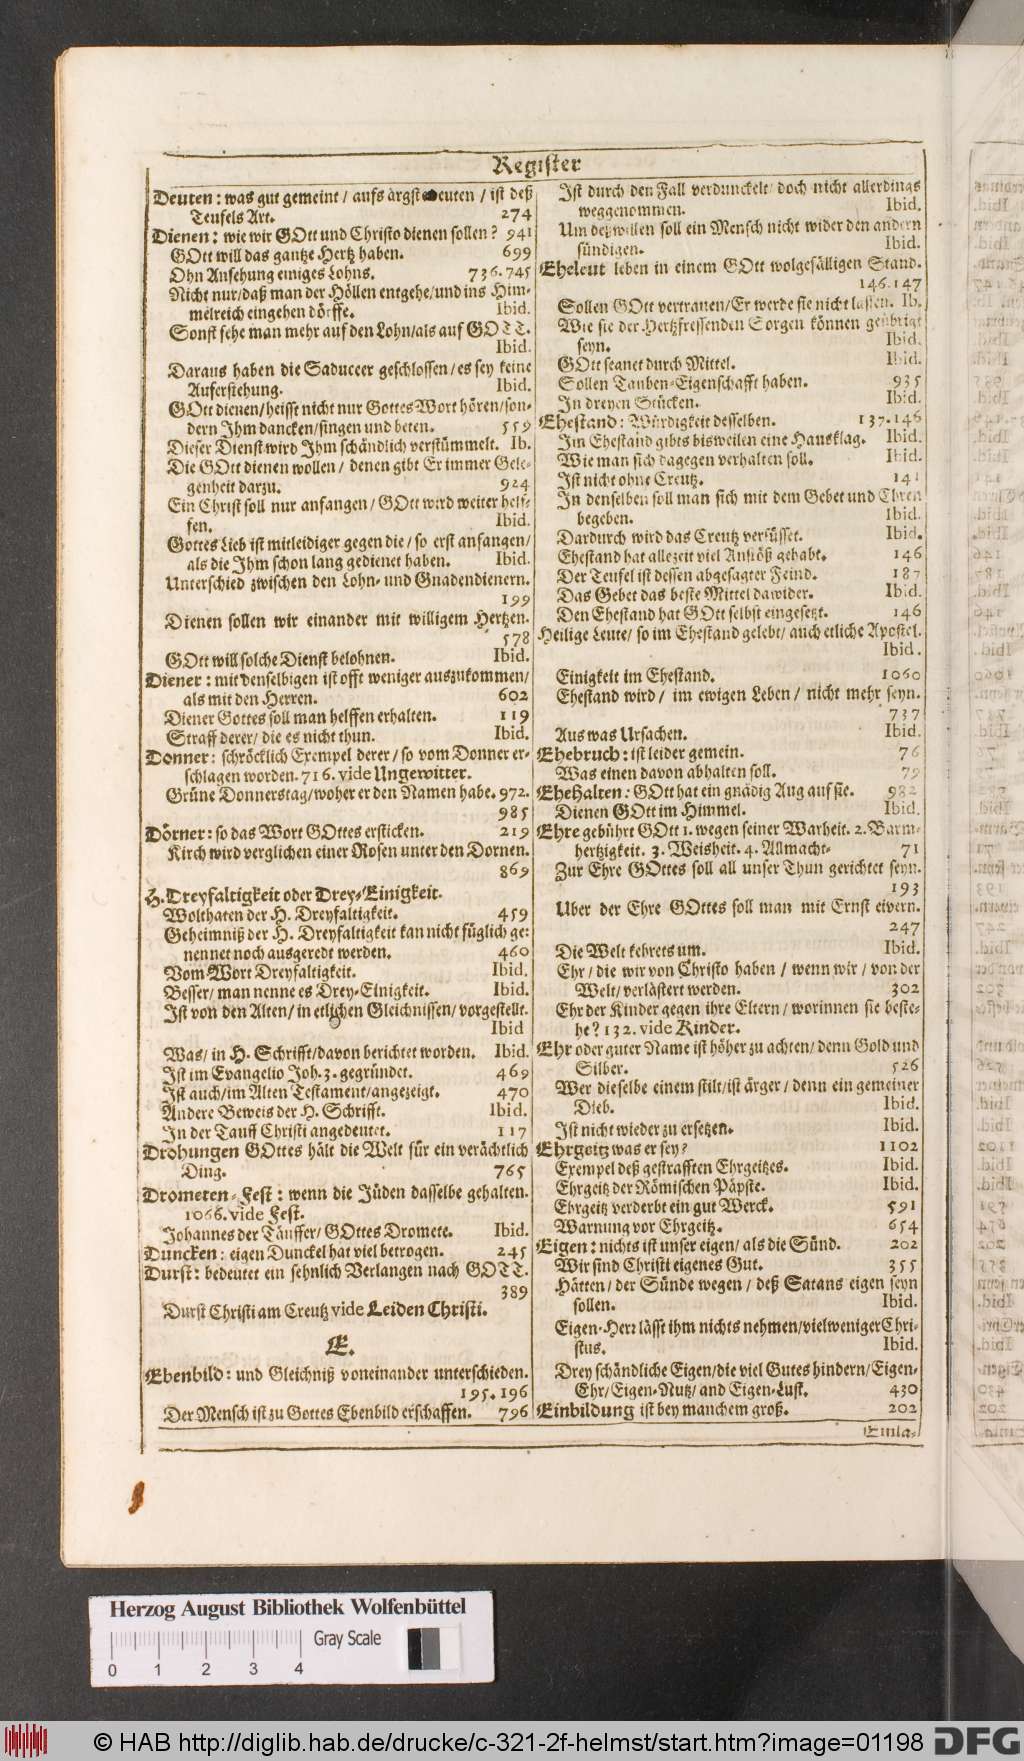 Register
Deuten: was gut gemeint / aufs ärgst deuten / ist deß
Teufels Art. 274
Dienen: wie wir GOtt und Christo dienen sollen? 941
GOtt will das gantze Hertz haben. 699
Ohn Ansehung einiges Lohns. 736.745
Nicht nur/daß man der Höllen entgehe/und ins Him-
melreich eingehen dörffe. Ibid.
Sonst sehe man mehr auf den Lohn/als auf GOTT.
Ibid.
Daraus haben die Saduceer geschlossen/es sey keine
Auferstehung. Ibid.
GOtt dienen/heisst nicht nur Gottes Wort hören/son-
dern Ihm dancken/singen und beten. 559
Dieser Dienst wird Ihm schändlich verstümmelt. Ib.
Die GOtt dienen wollen / denen gibt Er immer Gele-
genheit darzu. 924
Ein Christ soll nur anfangen/GOtt wird weiter helf-
fen. Ibid.
Gottes Lieb ist mitleidiger gegen die/so erst anfangen/
als die Ihm schon lang gedienet haben. Ibid.
Unterschied zwischen den Lohn- und Gnadendienern.
199
Dienen sollen wir einander mit willigem Hertzen.
578
GOtt will solche Dienst belohnen. Ibid.
Diener: mit denselbigen ist offt weniger auszukommen/
als mit den Herren. 602
Diener Gottes soll man helffen erhalten. 119
Straff derer/die es nicht thun. Ibid.
Donner: schröcklich Exempel derer/so vom Donner er-
schlagen worden. 716. vide Ungewitter.
Grüne Donnerstag/woher er den Namen habe. 972.
985
Dörner: so das Wort GOttes ersticken. 219
Kirch wird verglichen einer Rosen unter den Dornen.
869
H. Dreyfaltigkeit oder Drey-Einigkeit.
Wolthaten der H. Dreyfaltigkeit. 459
Geheimniß der H. Dreyfaltigkeit kan nicht füglich ge-
nennet noch ausgeredt werden. 460
Vom Wort Dreyfaltigkeit. Ibid.
Besser/man nenne es Drey-Einigkeit. Ibid.
Ist von den Alten/in etlichen Gleichnissen/vorgestellt.
Ibid
Was/in H. Schrifft/davon berichtet worden. Ibid.
Ist im Evangelio Joh. 3. gegründet. 469
Ist auch/im Alten Testament/angezeigt. 470
Andere Beweis der H. Schrifft. Ibid.
In der Tauff Christi angedeutet. 117
Drohungen GOttes hält die Welt für ein verächtlich
Ding. 765
Drometen-Fest: wenn die Jüden dasselbe gehalten.
1066. vide Fest.
Johannes der Täuffer/GOttes Dromete. Ibid.
Duncken: eigen Dunckel hat viel betrogen. 245
Durst: bedeutet ein sehnlich Verlangen nach GOTT.
389
Durst Christi am Creutz vide Leiden Christi.
E.
Ebenbild: und Gleichniß voneinander unterschieden.
195.196
Der Mensch ist zu Gottes Ebenbild erschaffen. 796
Ist durch den Fall verdunckelt/doch nicht allerdings
weggenommen. Ibid.
Um deßwillen soll ein Mensch nicht wider den andern
sündigen. Ibid.
Eheleut leben in einem GOtt wolgefälligen Stand.
146.147
Sollen GOtt vertrauen/Er werde sie nicht lassen. Ib.
Wie sie der Hertzfressenden Sorgen können geübrigt
seyn. Ibid.
GOtt segnet durch Mittel. Ibid.
Sollen Tauben-Eigenschafft haben. 935
In dreyen Stücken. Ibid.
Ehestand: Würdigkeit desselben. 137.146
Im Ehestand gibts bisweilen eine Hausklag. Ibid.
Wie man sich dagegen verhalten soll. Ibid.
Ist nicht ohne Creutz. 141
In denselben soll man sich mit dem Gebet und Ehren
begeben. Ibid.
Dardurch wird das Creutz versüsset. Ibid.
Ehestand hat allezeit viel Anstöß gehabt. 146
Der Teufel ist dessen abgesagter Feind. 187
Das Gebet das beste Mittel dawider. Ibid.
Den Ehestand hat GOtt selbst eingesetzt. 146
Heilige Leute/so im Ehestand gelebt/auch etliche Apostel.
Ibid.
Einigkeit im Ehestand. 1060
Ehestand wird / im ewigen Leben / nicht mehr seyn.
737
Aus was Ursachen. Ibid.
Ehebruch: ist leider gemein. 76
Was einen davon abhalten soll. 79
Ehehalten: GOtt hat ein gnädig Aug auf sie. 982
Dienen GOtt im Himmel. Ibid.
Ehre gebührt GOtt 1. wegen seiner Warheit. 2. Barm-
hertzigkeit. 3. Weisheit. 4. Allmacht- 71
Zur Ehre GOttes soll all unser Thun gerichtet seyn.
193
Uber der Ehre GOttes soll man mit Ernst eivern.
247
Die Welt kehrets um. Ibid.
Ehr/die wir von Christo haben / wenn wir/von der
Welt/verlästert werden. 302
Ehr der Kinder gegen ihre Eltern/worinnen sie beste-
he? 132. vide Kinder.
Ehr oder guter Name ist höher zu achten/denn Gold und
Silber. 526
Wer dieselbe einem stilt/ist ärger/denn ein gemeiner
Dieb. Ibid.
Ist nicht wieder zu ersetzen. Ibid.
Ehrgeitz was er sey? 1102
Exempel deß gestrafften Ehrgeitzes. Ibid.
Ehrgeitz der Römischen Päpste. Ibid.
Ehrgeitz verderbt ein gut Werck. 591
Warnung vor Ehrgeitz. 654
Eigen: nichts ist unser eigen/als die Sünd. 202
Wir sind Christi eigenes Gut. 355
Hätten/der Sünde wegen/deß Satans eigen seyn
sollen. Ibid.
Eigen-Herr lässt ihm nichts nehmen/vielweniger Chri-
stus. Ibid.
Drey schändliche Eigen/die viel Gutes hindern/Eigen-
Ehr/Eigen-Nutz/and Eigen-Lust. 430
Einbildung ist bey manchem groß. 202
Einla-
Herzog August Bibliothek Wolfenbüttel
Gray Scale
0 1 2 3 4
© HAB http://diglib.hab.de/drucke/c-321-2f-helmst/start.htm?image=01198
DFG